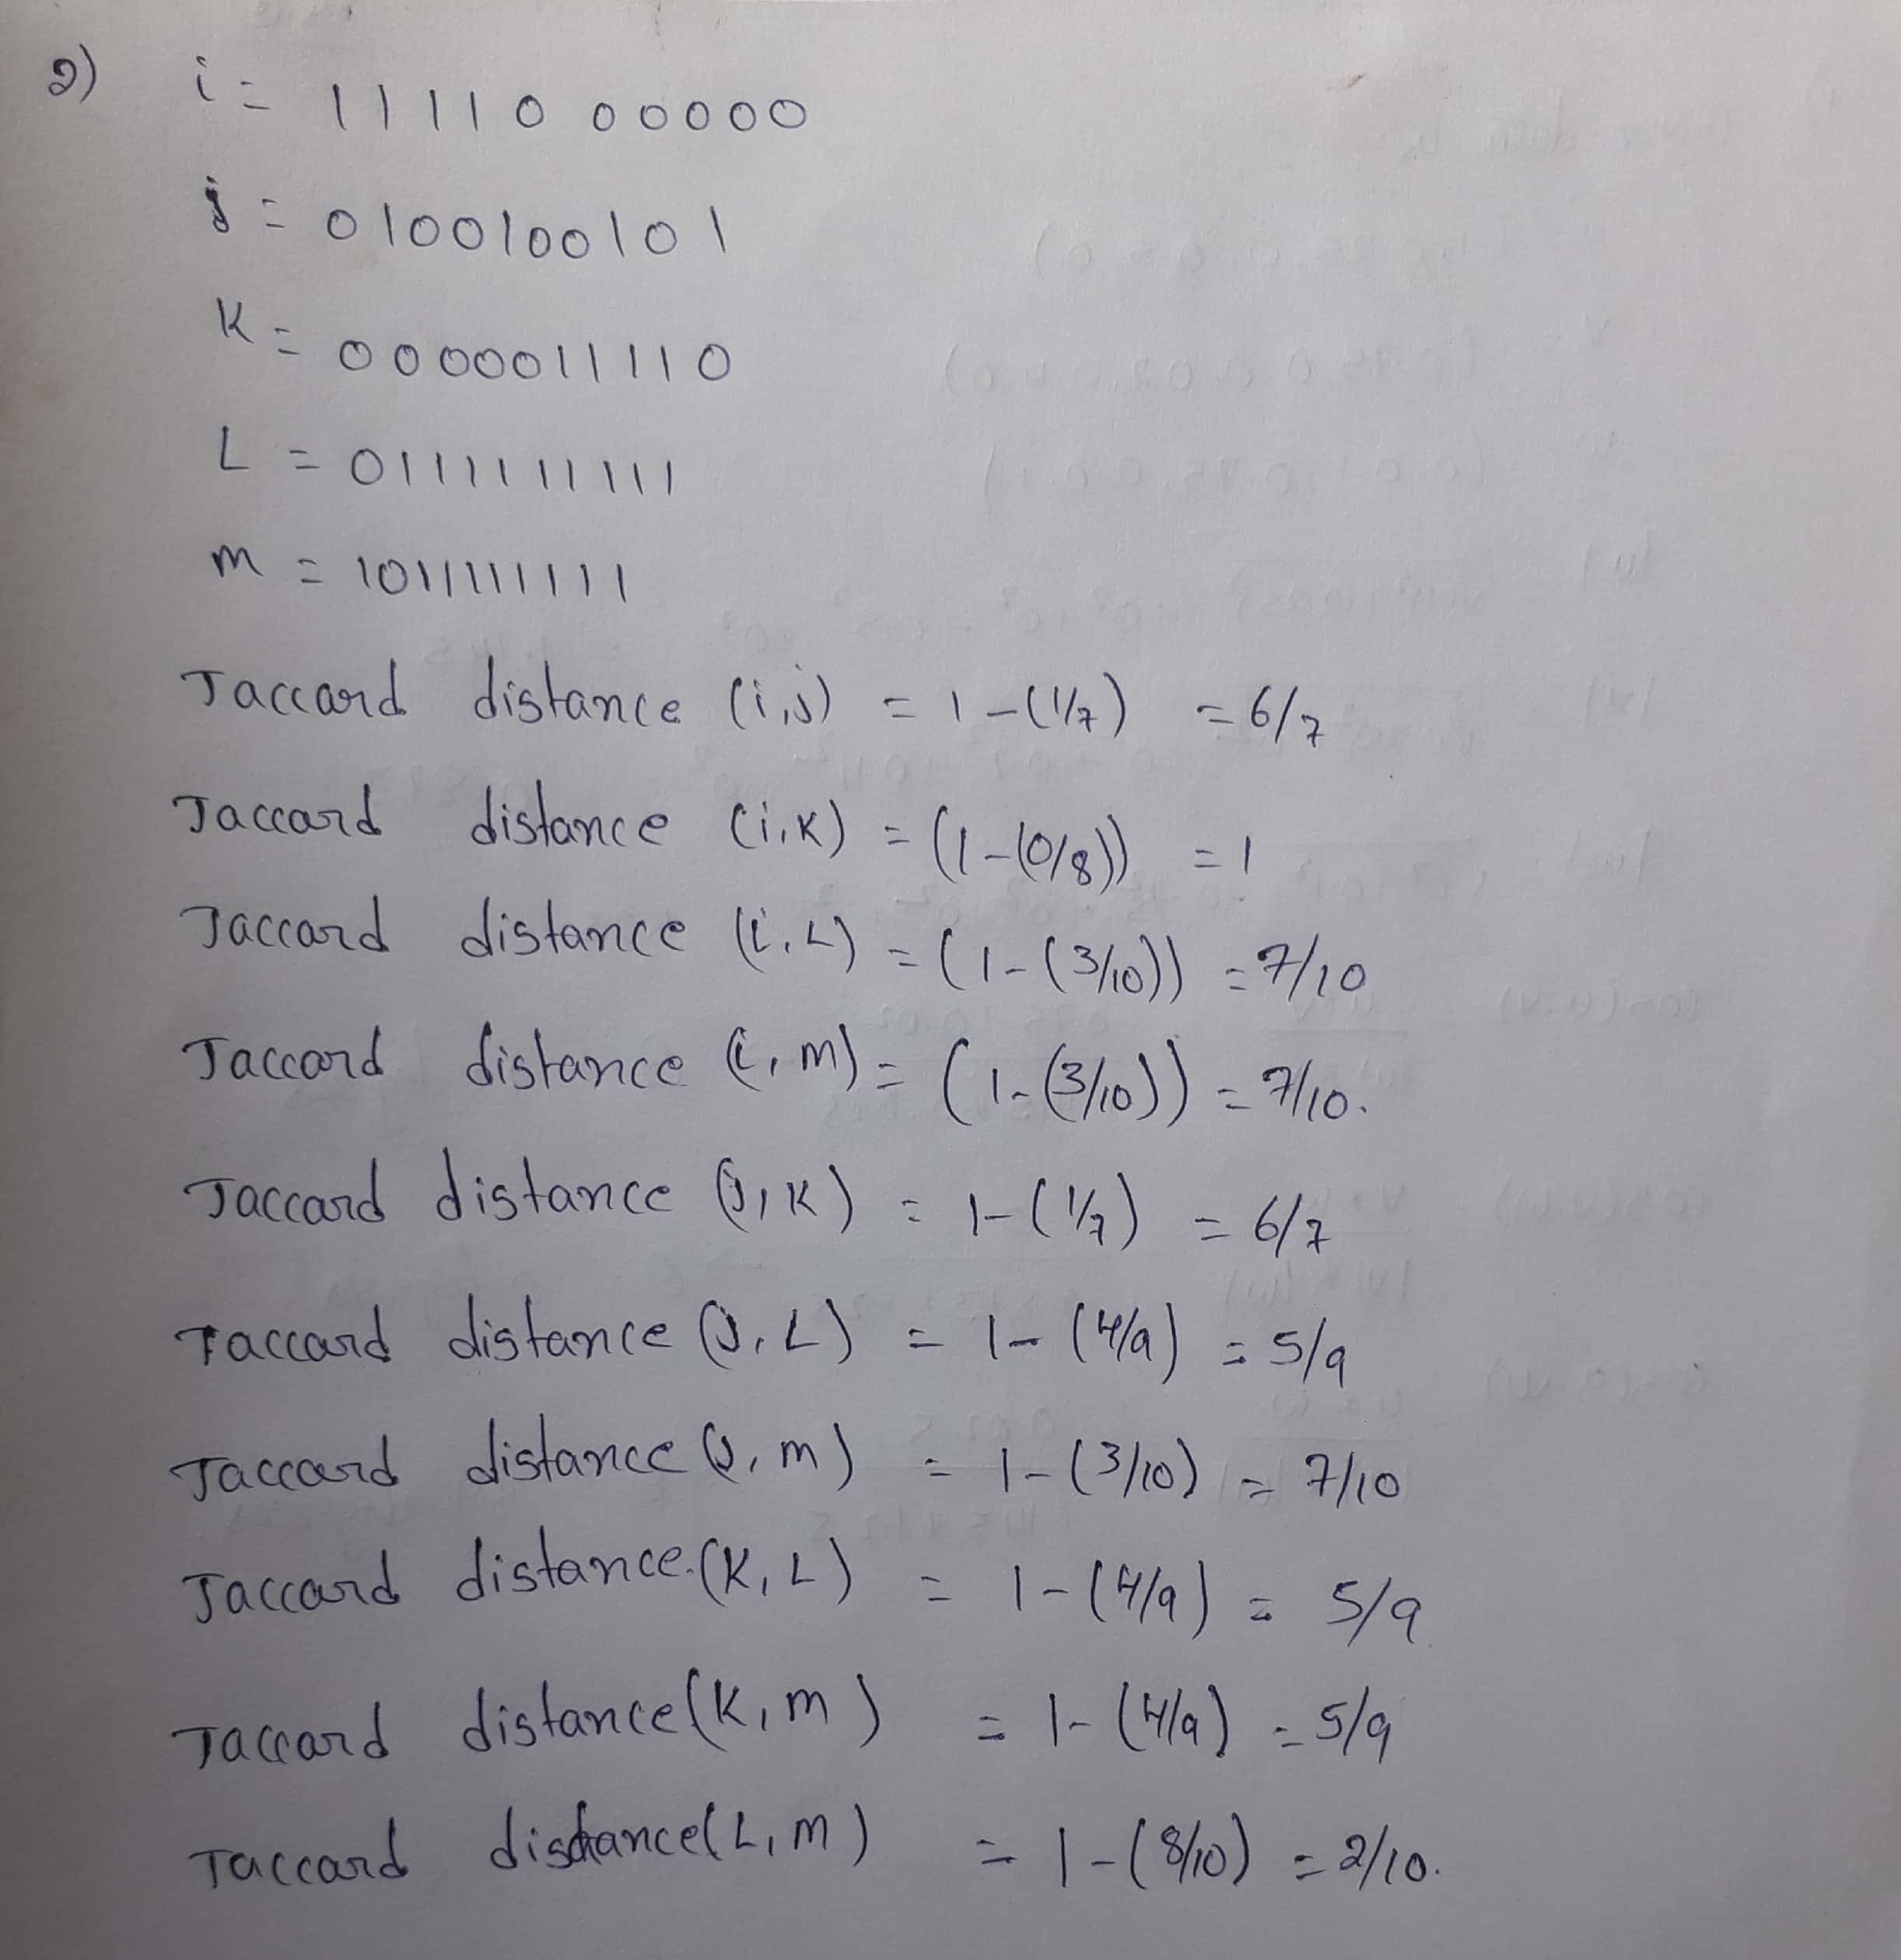 2) i = 1111000000
j = 0100100101
K = 0000011110
L = 0111111111
m = 1011111111
Jaccard distance (i,j) = 1-(1/7) = 6/7
Jaccard distance (i,K) = (1-(0/8)) = 1
Jaccard distance (i,L) = (1-(3/10)) = 7/10
Jaccard distance (i,m) = (1-(3/10)) = 7/10.
Jaccard distance (j,K) = 1-(1/7) = 6/7
Jaccard distance (j,L) = 1-(4/9) = 5/9
Jaccard distance (j,m) = 1-(3/10) = 7/10
Jaccard distance.(K,L) = 1-(4/9) = 5/9
Jaccard distance(K,m) = 1-(4/9) = 5/9
Jaccard distance(L,m) = 1-(8/10) = 2/10.